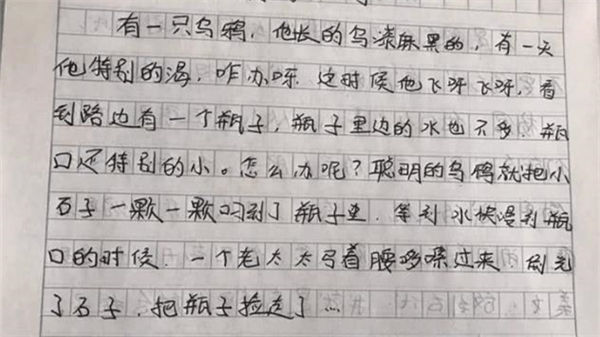 有一只乌鸦，他长的乌漆麻黑的，有一天
他特别的渴，咋办呀，这时候他飞呀飞呀，看
到路边有一个瓶子，瓶子里边的水也不多，瓶
口还特别的小。怎么办呢？聪明的乌鸦就把小
石子一颗一颗叼到了瓶子里，等到水快漫到瓶
口的时候，一个老太太弓着腰哆嗦过来，倒光
了石子，把瓶子捡走了…